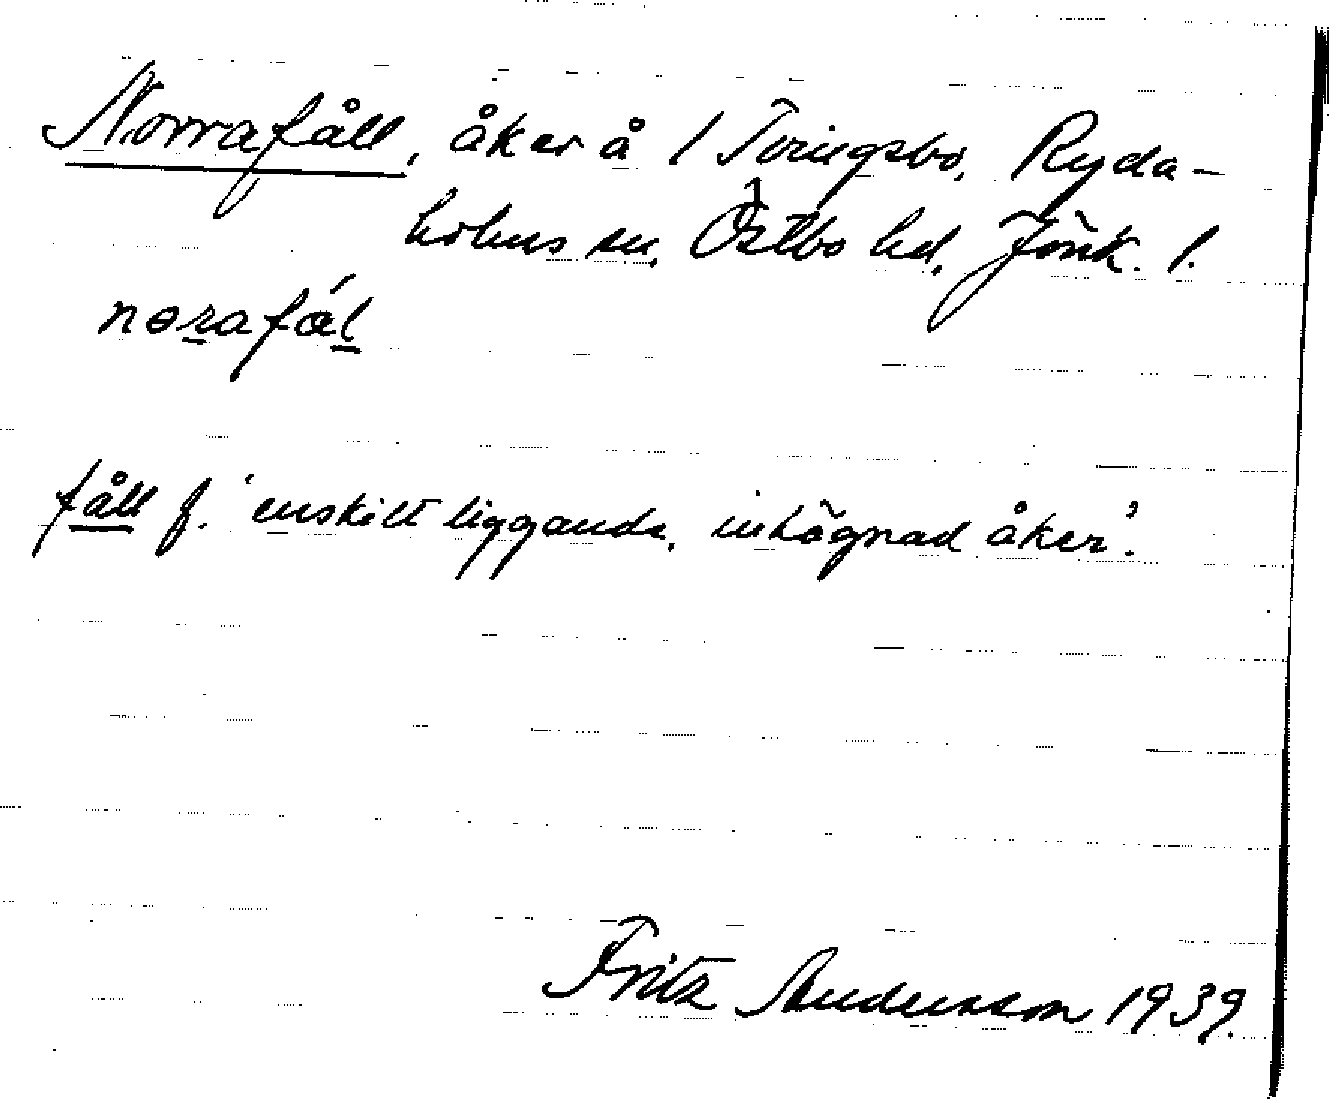 Norrafåll, åker å 1 Toringsbo, Ryda-
holms sn, Östbo hd, Jönk. l.
nɵrafál
fåll f. 'enskilt liggande, inhägnad åker'.
Fritz Andersson 1939.